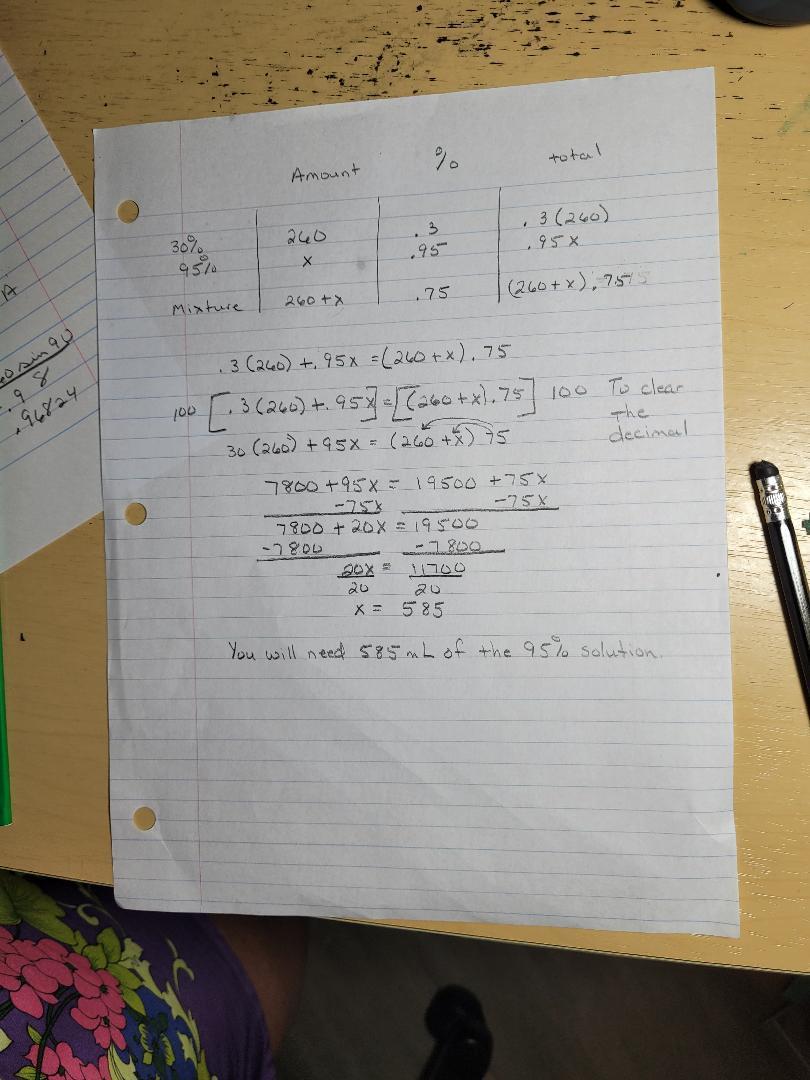 Amount % total
30% 260 .3 .3(260)
95% x .95 .95x
Mixture 260+x .75 (260+x).75
.3(260)+.95x=(260+x).75
100[.3(260)+.95x]=[(260+x).75]100 To clear
the
decimal
30(260)+95x=(260+x)75
7800+95x=19500+75x
-75x -75x
7800+20x=19500
-7800 -7800
20x=11700
20 20
x=585
You will need 585 mL of the 95% solution.
A
sin 90
.98
.96824